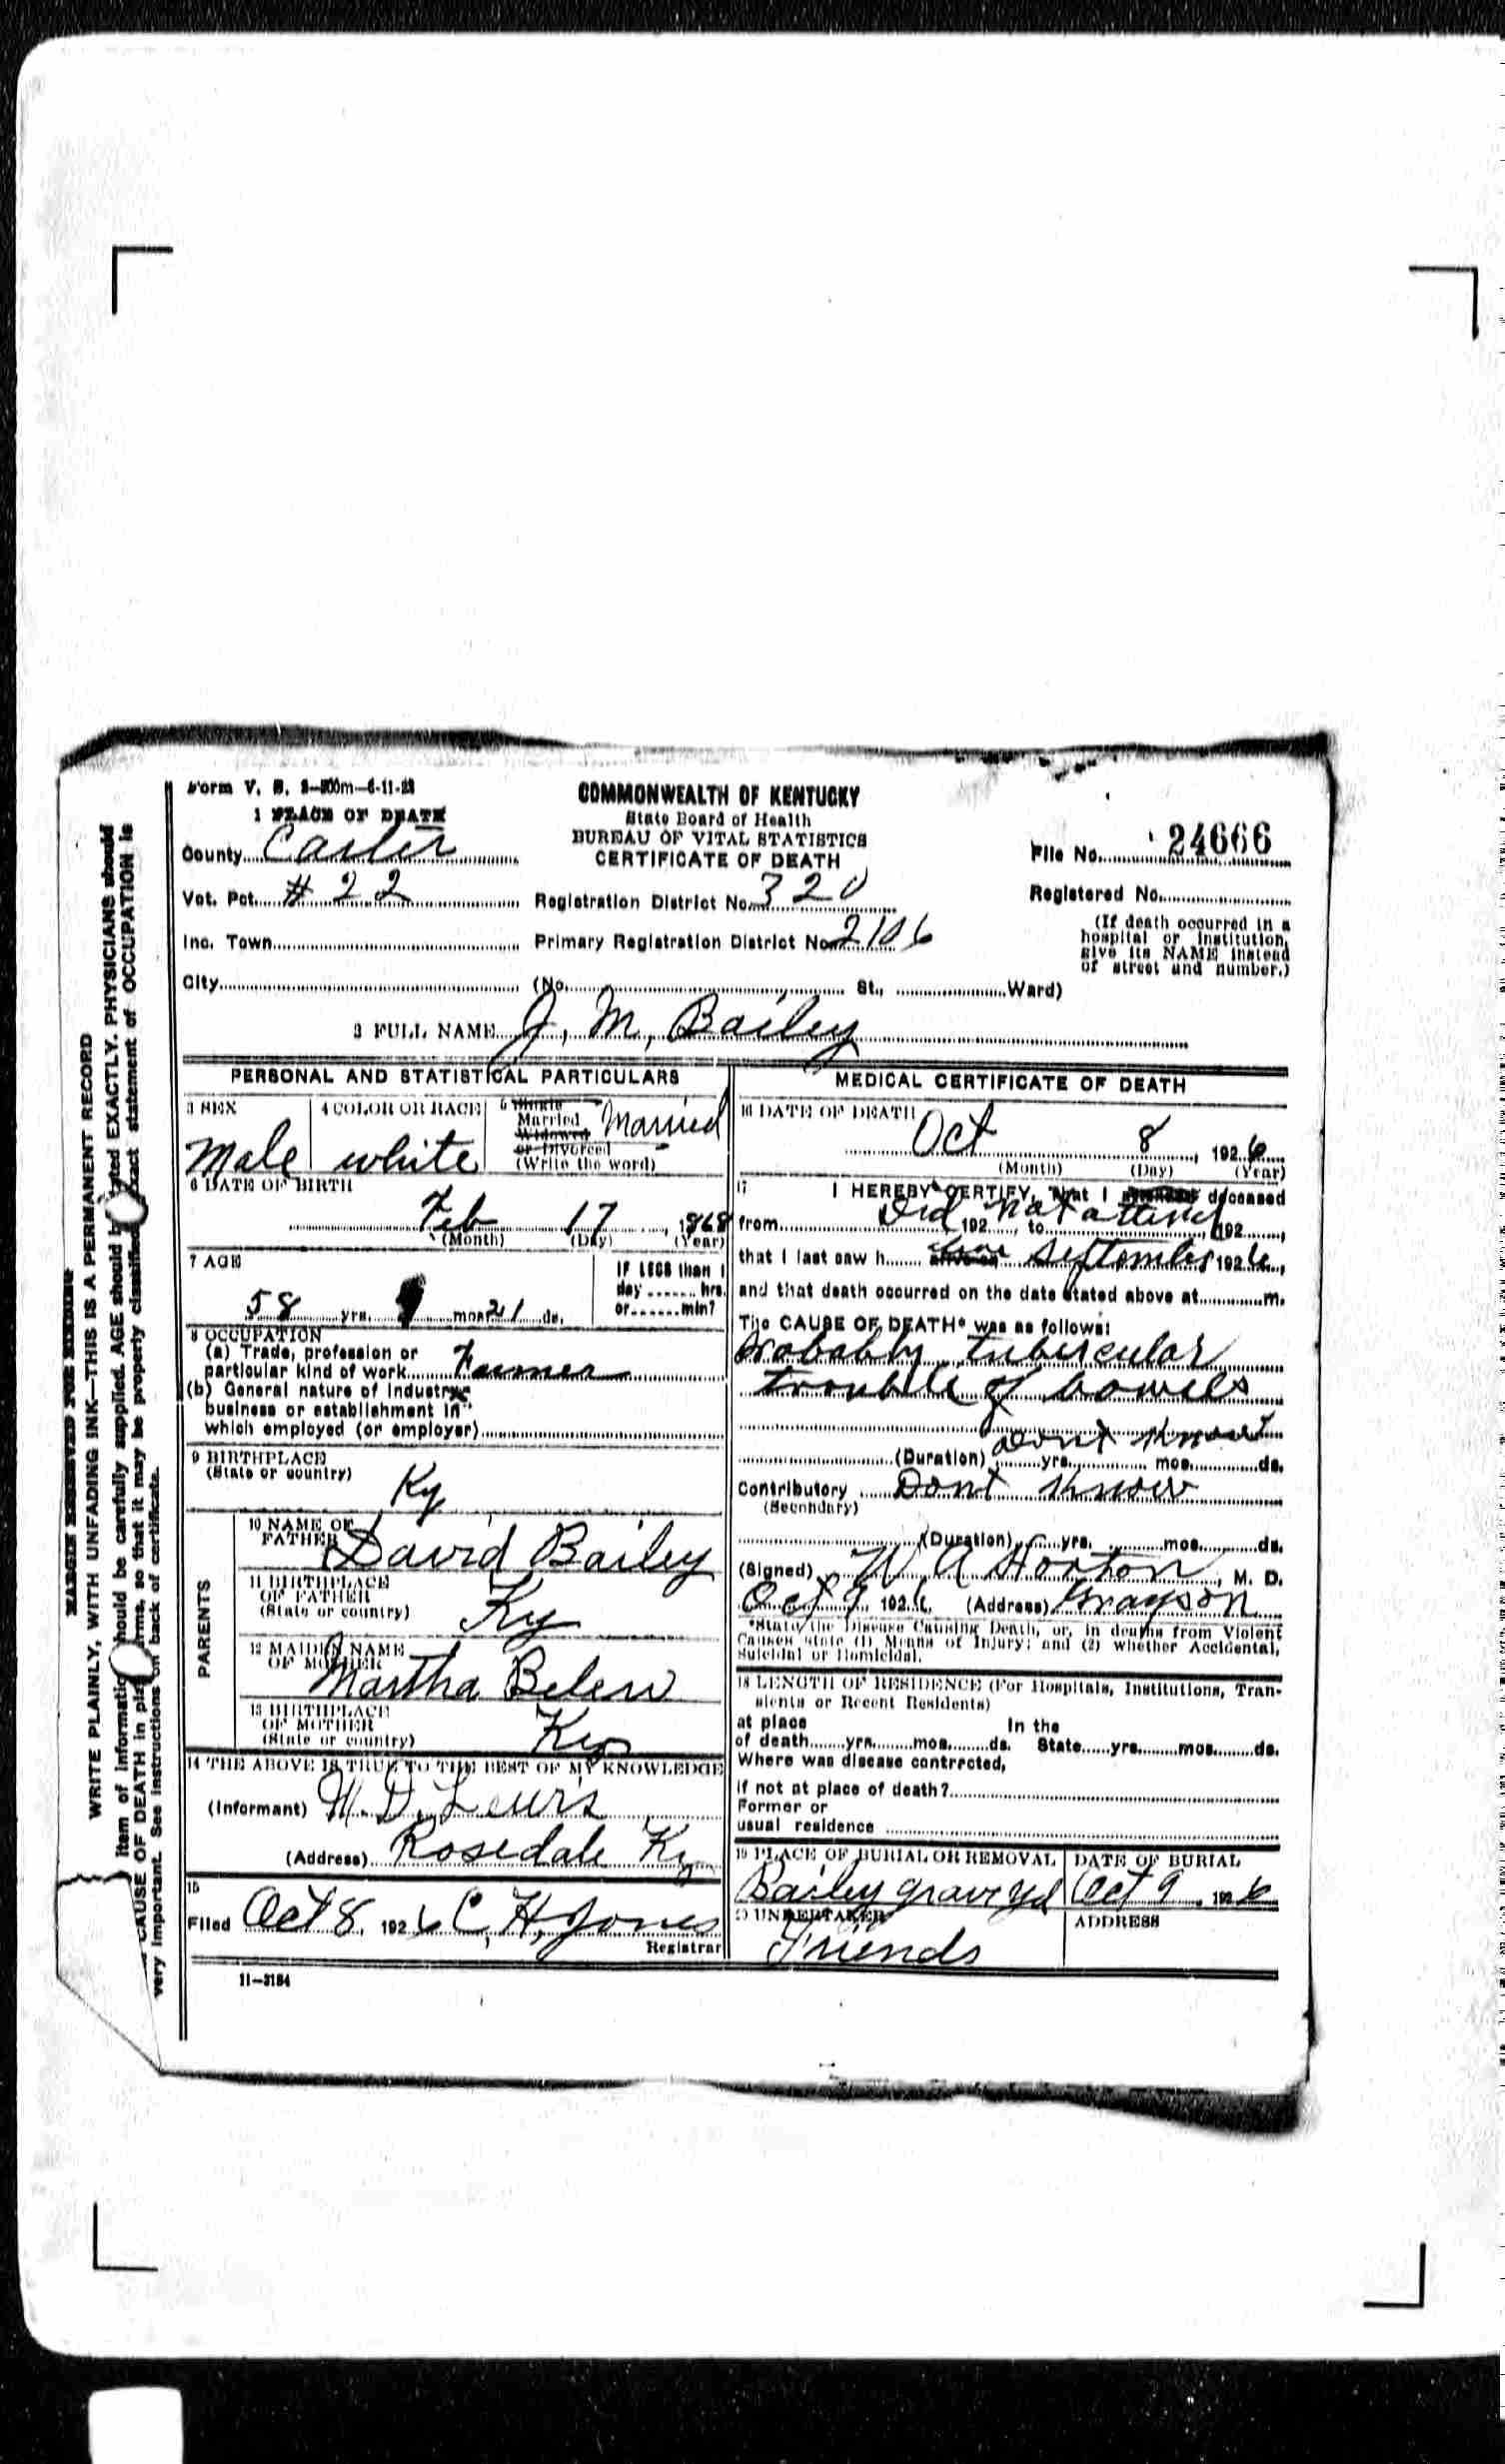 MARGIN RESERVED FOR BINDING
WRITE PLAINLY, WITH UNFADING INK—THIS IS A PERMANENT RECORD
item of information should be carefully supplied. AGE should be stated EXACTLY. PHYSICIANS should
CAUSE OF DEATH in plain terms, so that it may be properly classified. Exact statement of OCCUPATION is
very important. See instructions on back of certificate.
Form V. S.
1 PLACE OF DEATH
COMMONWEALTH OF KENTUCKY
State Board of Health
BUREAU OF VITAL STATISTICS
CERTIFICATE OF DEATH
County Carter
File No. 24666
Vot. Pct. # 22
Registration District No. 320
Registered No.
Inc. Town
Primary Registration District No. 2106
(If death occurred in a
hospital or institution,
give its NAME instead
of street and number.)
City (No. St., Ward)
2 FULL NAME J. M. Bailey
PERSONAL AND STATISTICAL PARTICULARS
3 SEX
Male
4 COLOR OR RACE
white
5 Single
Married
Widowed
or Divorced
(Write the word)
Married
6 DATE OF BIRTH
Feb 17, 1868
(Month) (Day) (Year)
7 AGE
58 yrs. mos. 21 ds.
IF LESS than 1
day hrs.
or min?
8 OCCUPATION
(a) Trade, profession or
particular kind of work Farmer
(b) General nature of industry
business or establishment in
which employed (or employer)
9 BIRTHPLACE
(State or country)
Ky
PARENTS
10 NAME OF
FATHER David Bailey
11 BIRTHPLACE
OF FATHER
(State or country) Ky
12 MAIDEN NAME
OF MOTHER
Martha Belew
13 BIRTHPLACE
OF MOTHER
(State or country) Ky
14 THE ABOVE IS TRUE TO THE BEST OF MY KNOWLEDGE
(Informant) M. D. Lewis
(Address) Rosedale Ky
15
Filed Oct 8, 1926 C. H. Jones
Registrar
11—3184
MEDICAL CERTIFICATE OF DEATH
16 DATE OF DEATH
Oct 8, 1926
(Month) (Day) (Year)
17 I HEREBY CERTIFY, That I attended deceased
Did not attend
from 192 , to , 192 ,
that I last saw h alive on September 1926,
and that death occurred on the date stated above at m.
The CAUSE OF DEATH* was as follows:
Probably tubercular
trouble of bowels
Dont Know
(Duration) yrs. mos. ds.
Contributory Dont Know
(Secondary)
(Duration) yrs. mos. ds.
(Signed) W A Horton, M. D.
Oct 9 1926 (Address) Grayson
*State the Disease Causing Death, or, in deaths from Violent
Causes state (1) Means of Injury; and (2) whether Accidental,
Suicidal or Homicidal.
18 LENGTH OF RESIDENCE (For Hospitals, Institutions, Tran-
sients or Recent Residents)
at place In the
of death yrs. mos. ds. State yrs. mos. ds.
Where was disease contrrcted,
if not at place of death?
Former or
usual residence
19 PLACE OF BURIAL OR REMOVAL
Bailey grave yd
DATE OF BURIAL
Oct 9, 1926
20 UNDERTAKER
Friends
ADDRESS